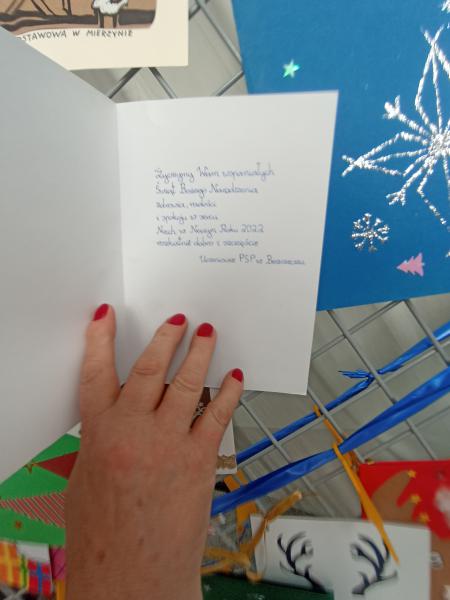 STAWOWA W MIERZYNIE
Życzymy Wam wspaniałych
Świąt Bożego Narodzenia
zdrowia, miłości
i spokoju w sercu
Niech w Nowym Roku 2022
rozkwitnie dobro i szczęście
Uczniowie PSP w